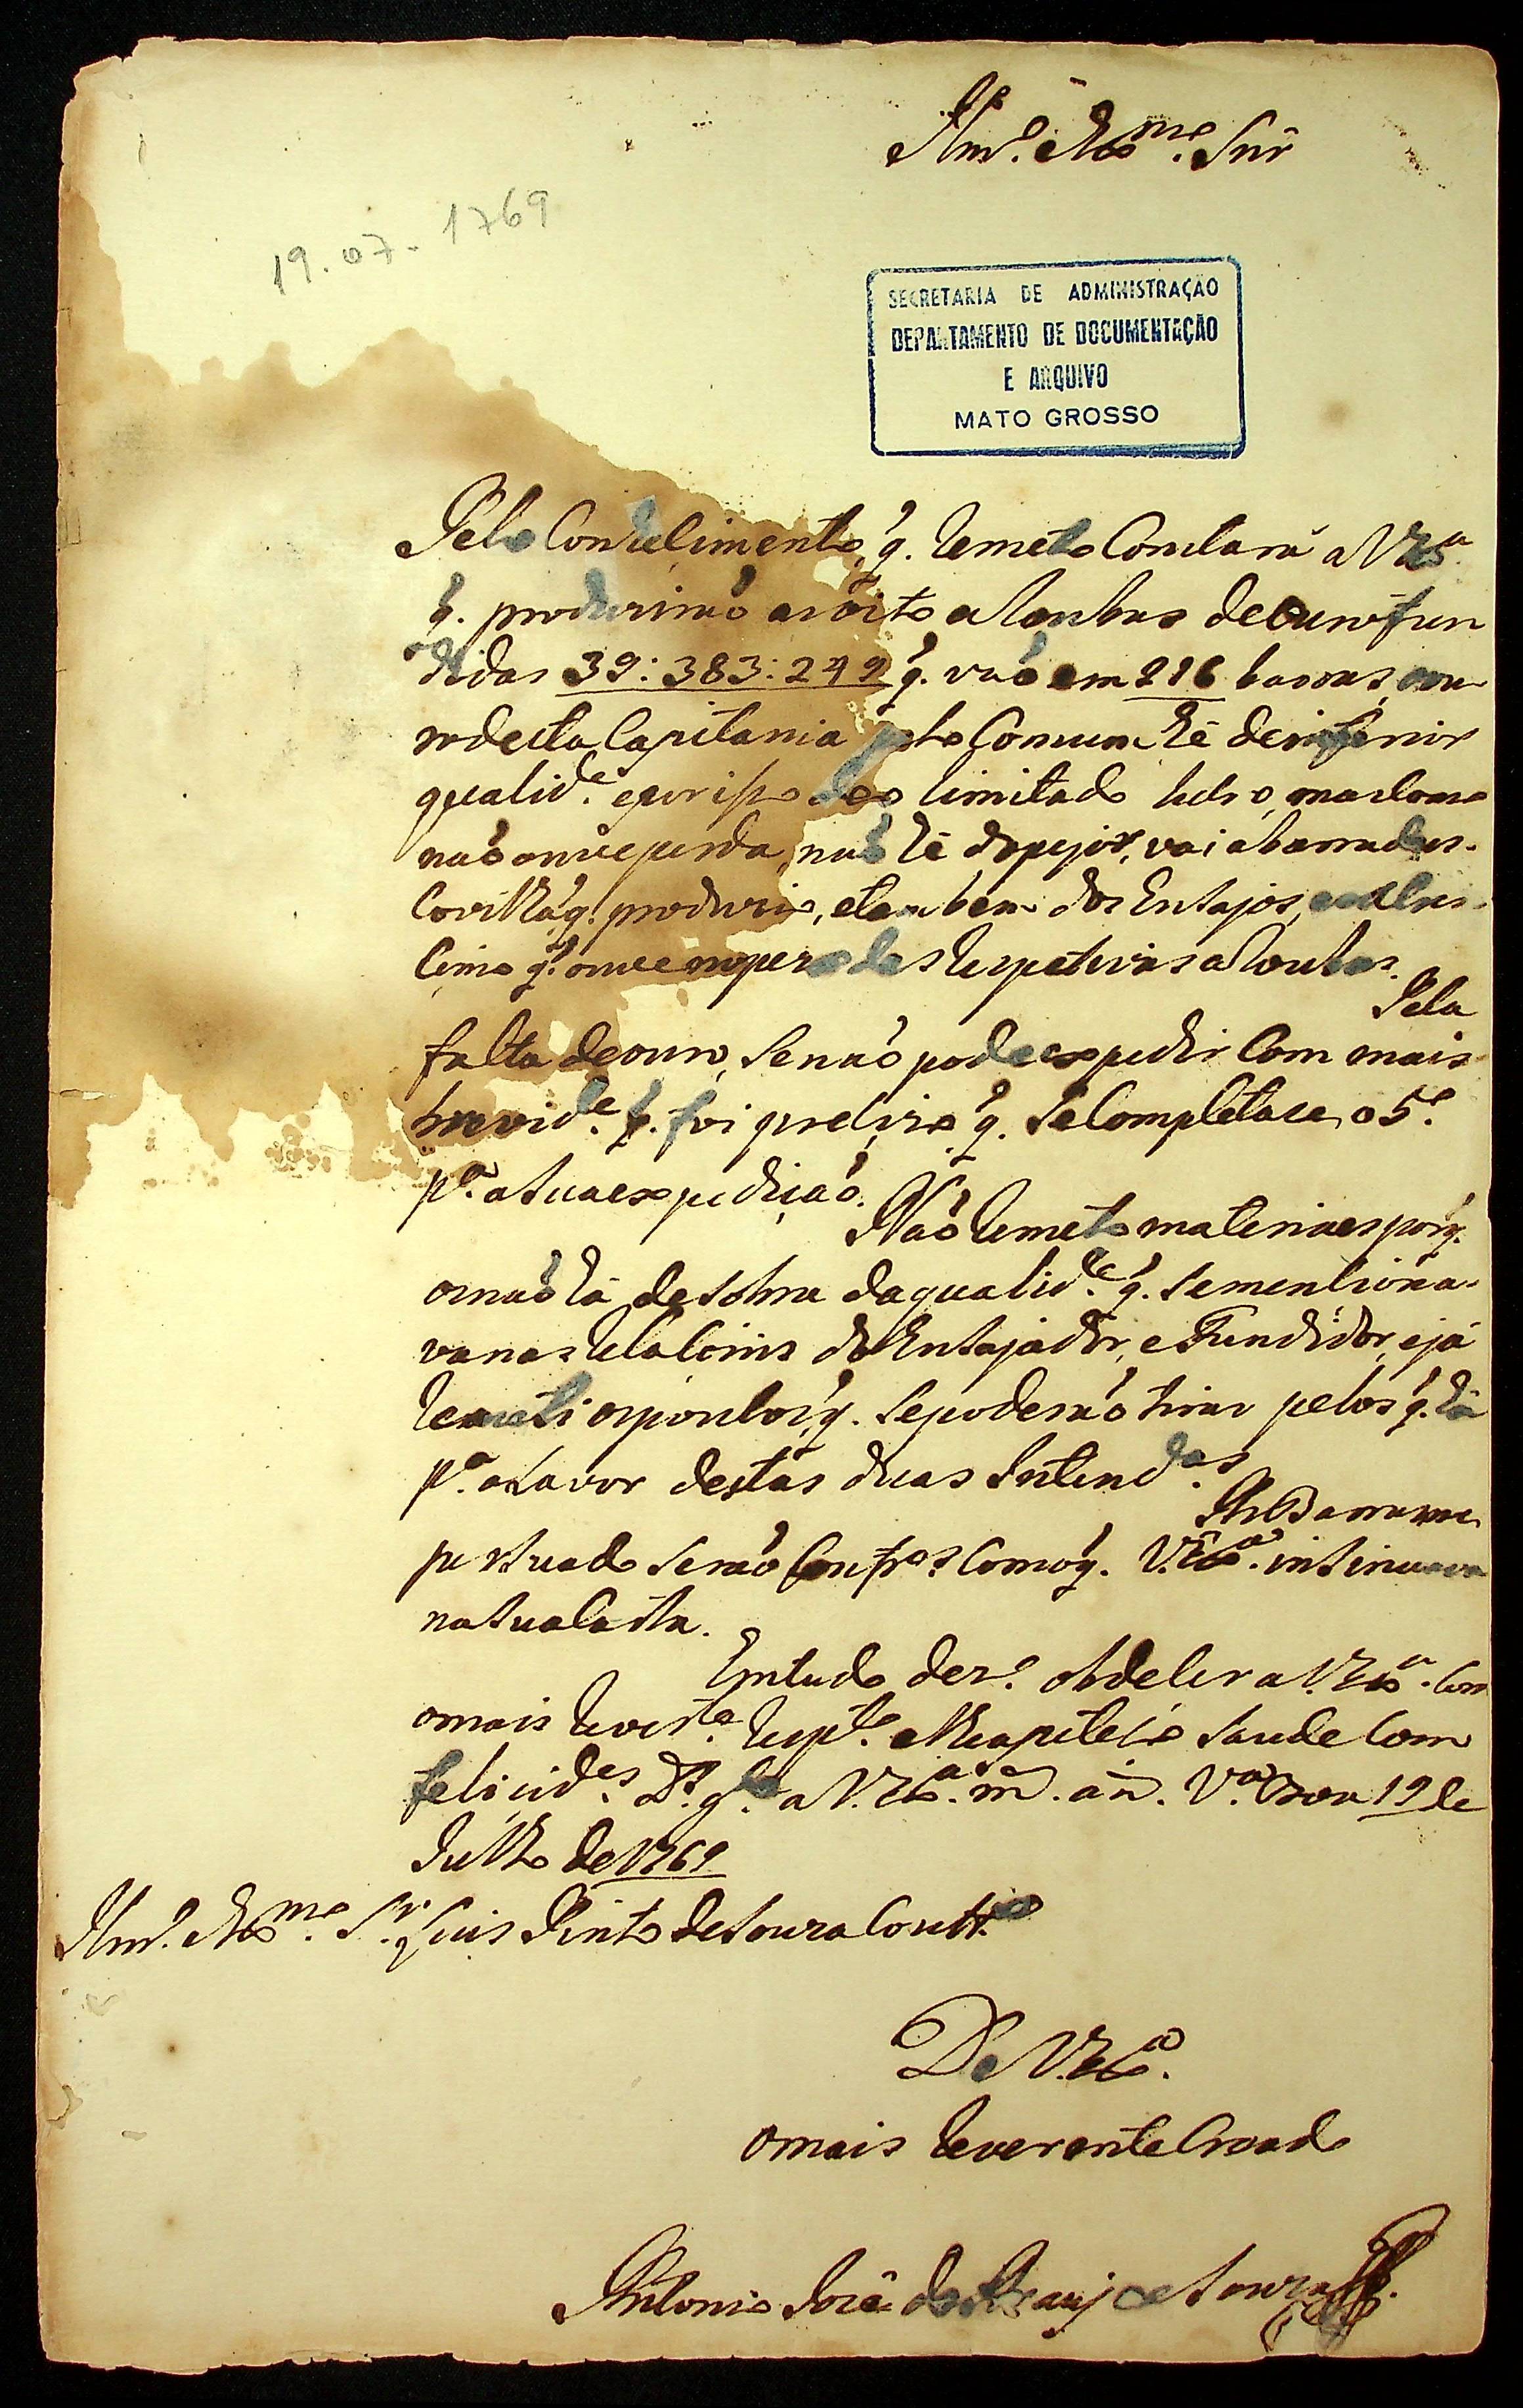 Illm.º e Exmº. Snr
19.07.1769
SECRETARIA DE ADMINISTRAÇÃO
DEPARTAMENTO DE DOCUMENTAÇÃO
E ARQUIVO
MATO GROSSO
Pelo Conhecimento, q. remeto Constará a V Exª
q. produzimó as oito aRoubas de ouro fun
didas 39:383:249 q. vaó em 216 barras, ou
ro desta Capitania pelo Comum hé de inferior
qualid.e e por isso deo limitado lucro, mas como
naó ouve perda, naó hé
q. produzio, e tambem dos Ensayos,
q. ouve respetivas aRoubas.
Pela
falta de ouro, se naó pode expedir Com mais
brevid.e q. foi precizo q. se Completase o 5.º
p.ª a sua expediçaó.
Naó remeto materiaes porq.
os naó há de sobra da qualid.e q. se menciona-
va nas Relaçoins do Ensayador, e Fundidor, e já
remeti os q. se poderaó tirar pelos q. há
p.ª o Lavor destas duas Intend.as
As Barras me
persuado seraó Comq. V. Exª. insinuava
na sua Carta.
Em tudo dez.º obdecer a V. Exª. Com
o mais rever.te resp.to e saude Com
felicid.es D.s g.de a V. Exª. m. an. V.ª Boa 19 de
Julho de 1769
Illm.º e Exmº. Sr. Luis Pinto de Souza Coutt.º
De V. Exª.
o mais reverente Criado
Antonio Jozé de Araujo e Souza